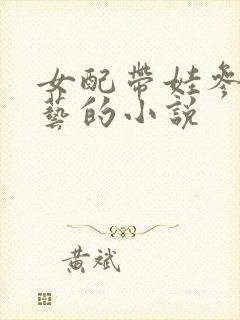 女配帶娃參
藝的小説
黃斌